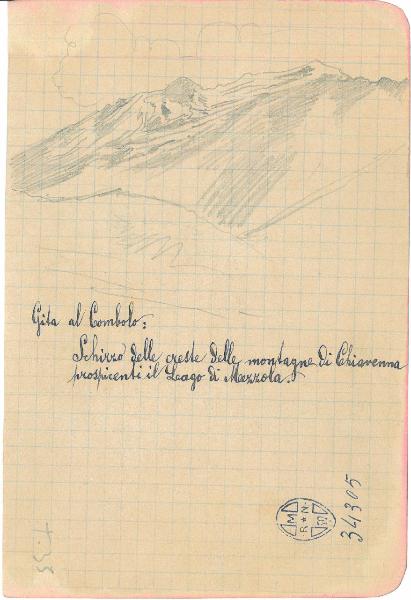 Gita al Combolo:
Schizzo delle creste delle montagne di Chiavenna
prospicenti il Lago di Mezzola.
M
R★N
34305